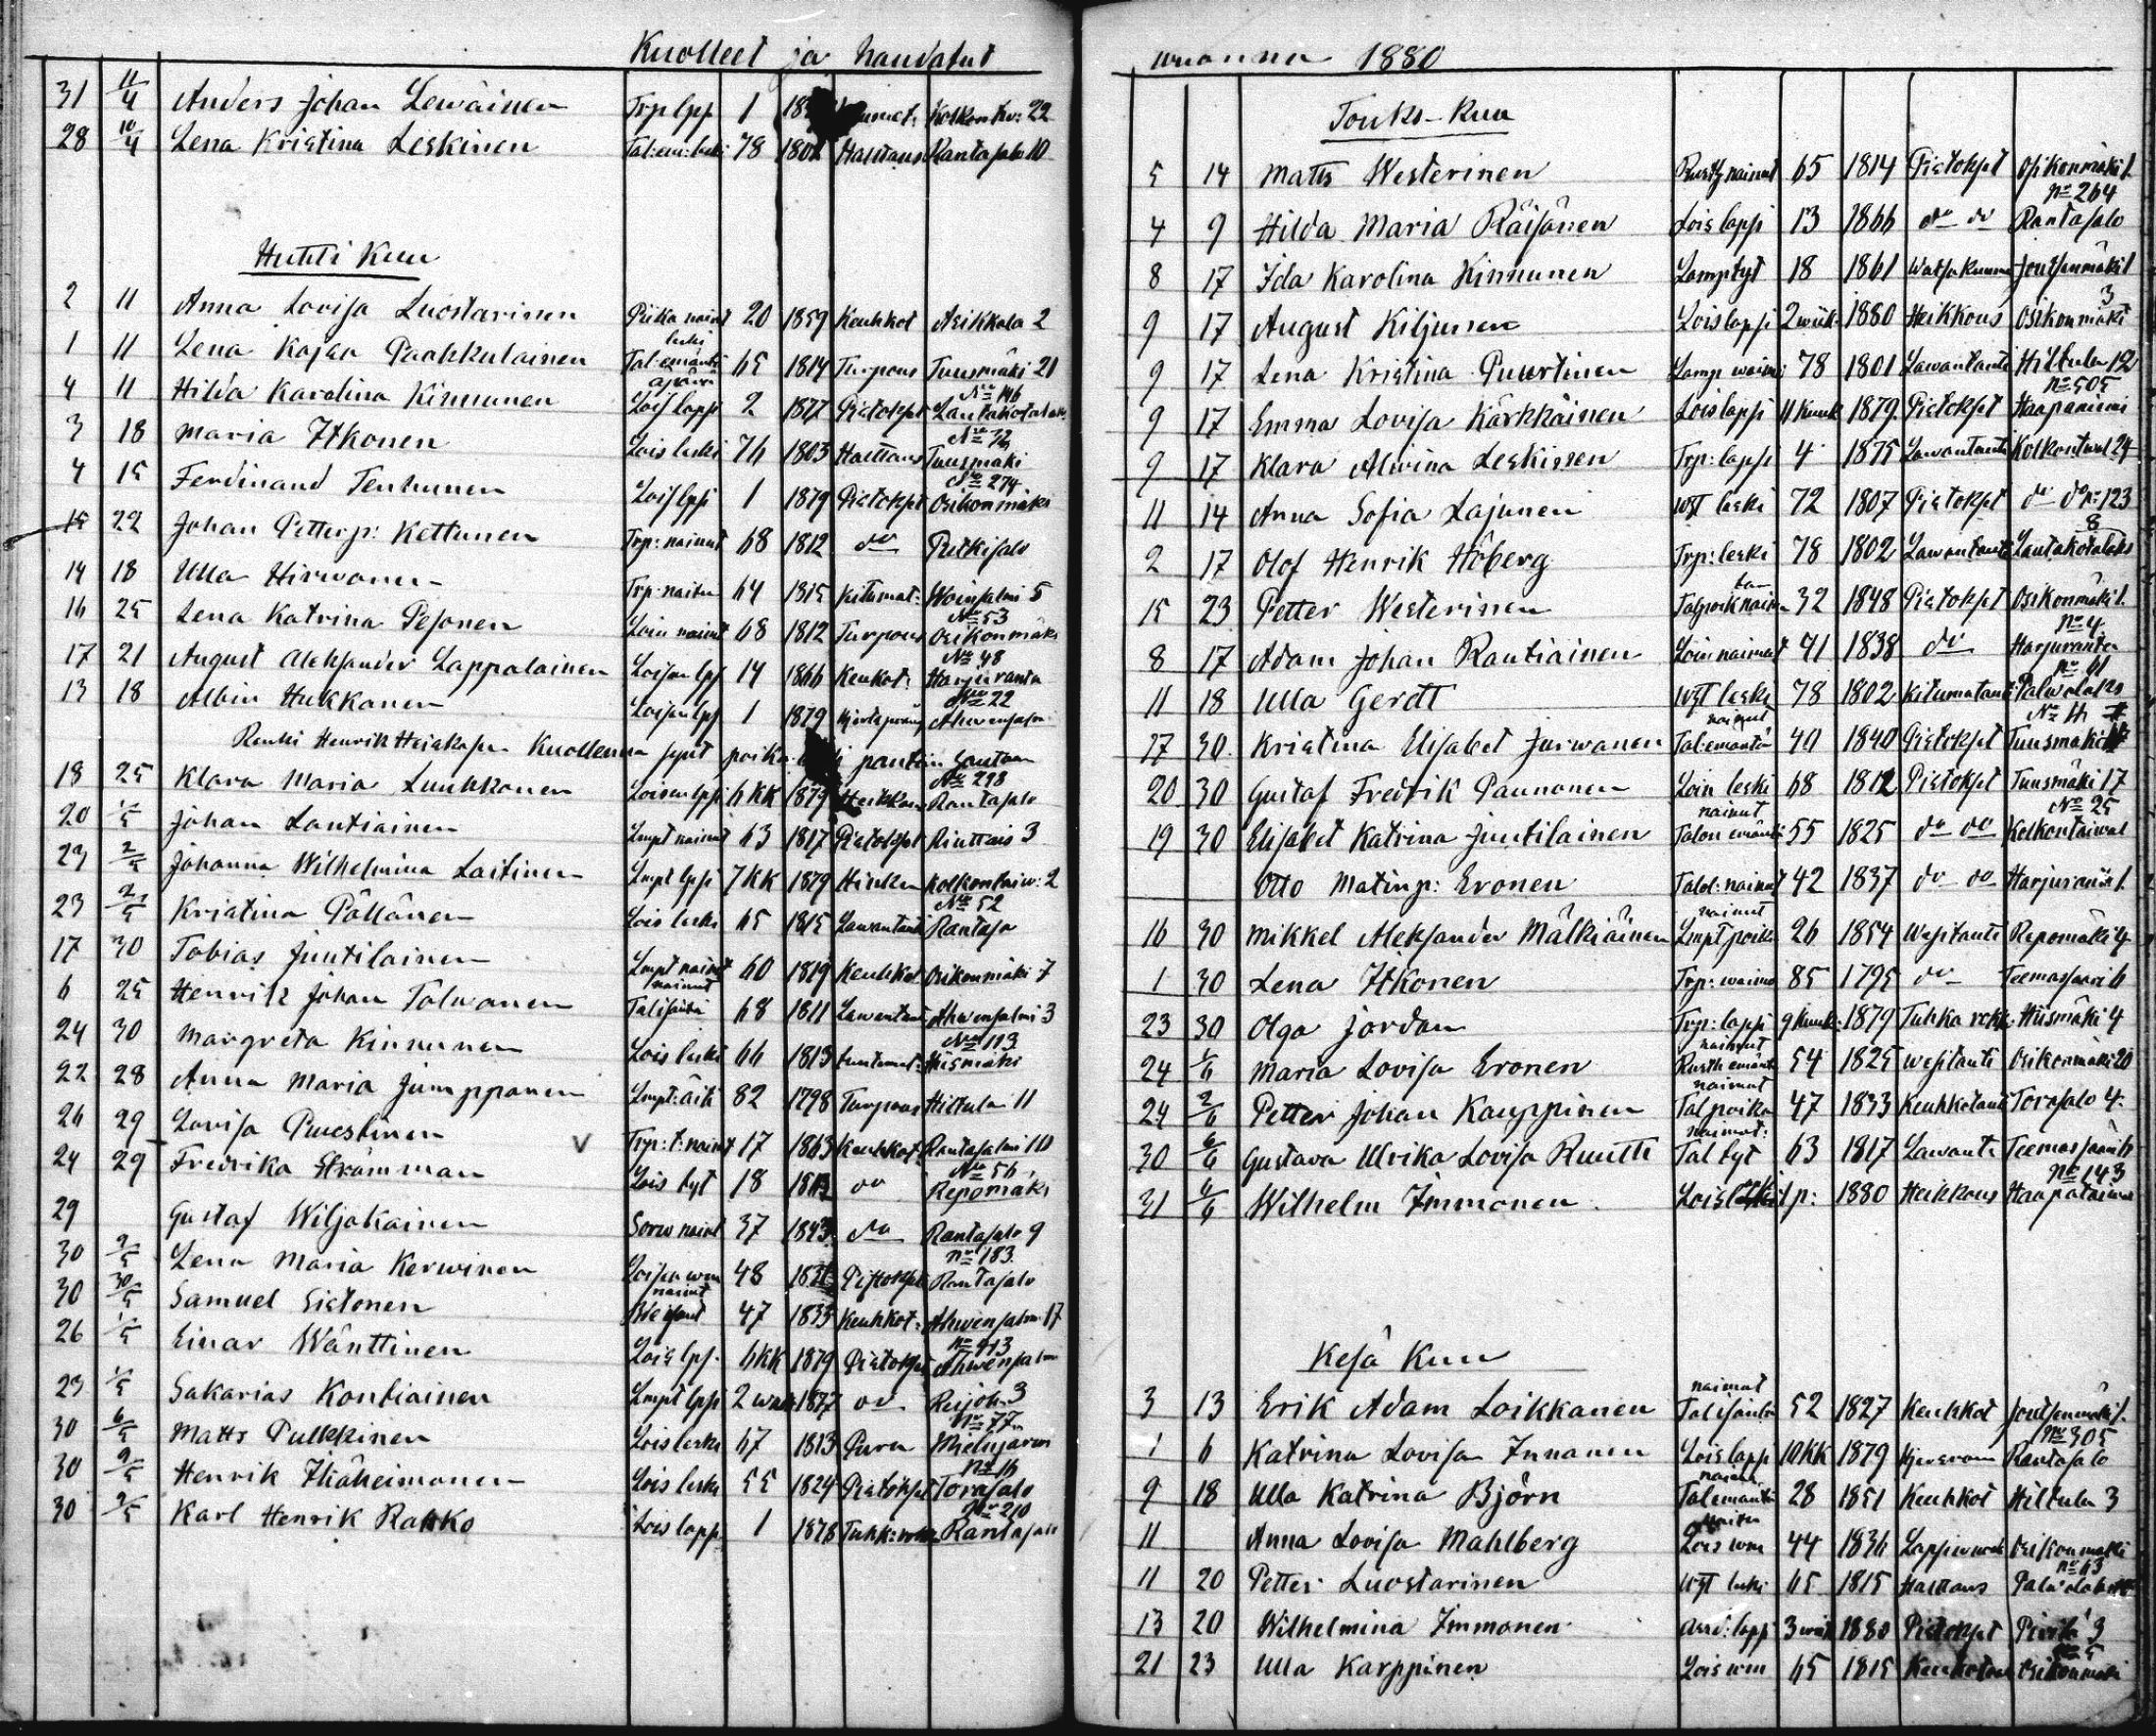 Kuolleet ja haudatut
31 11/4 Anders Johan Lewäinen Trp lpp 1 Kolkontw: 22
28 10/4 Lena Kristina Leskinen Tal: em: leski 78 1802 Halttaus Rantasalo 10
Huhti Kuu
2 11 Anna Lovisa Luostarinen Piika naimt 20 1859 Keuhkot Asikkala 2
1 11 Lena Kaisa Paahkulainen leski Tal: emäntä 65 1814 Turpous Tuusmäki 21
4 11 Hilda Karolina Kinnunen Lois lapsi 2 1877 Pistokset No 146
3 18 Maria Itkonen Lois leski 76 1803 Halttaus Tuusmäki No 72
4 15 Ferdinand Tenhunen Lois lpsi 1 1879 Pistokset Osikonmäki No 274
15 22 Johan Petterp: Kettunen Trp: nainut 68 1812 do Pitkäsalo
14 18 Ulla Hirwonen Trp: naitu 64 1815 kitumat: Woinsalmi 5
16 25 Lena Katrina Pesonen Loin nainut 68 1812 Turpous Osikonmäki No 53
17 21 August Aleksander Lappalainen Loisen lps 14 1866 Keukot: Harjuranta No 48
13 18 Albin Hukkanen Loisen lps 1 1879 Ahwensalmi No 22
Renki Henrik Heiskasen Kuollenna synt poika pantiin hautaan
18 25 Klara Maria Luukkonen Loisen lpsi 6 kk 1879 Heikkous Rantasalo No 298
20 1/5 Johan Lautiainen Lmpt nainut 63 1817 Pistokset 3
23 2/5 Johanna Wilhelmina Laitinen Lmpt lpsi 7 kk 1879 Hinku Kolkontaiw: 2
23 2/5 Kristina Pöllänen Lois leski 65 1815 Lawantauti Rantasa No 52
17 30 Tobias Juutilainen Lmpt nainut 60 1819 Keuhkot Osikonmäki 7
6 25 Henrik Johan Tolwanen nainut Tal isäntä 68 1811 Lawantau Ahwensalmi 3
24 30 Margreta Kinnunen Lois leski 66 1813 Hiismäki No 113
22 28 Anna Maria Jumppanen Lmpt: äiti 82 1798 Turpous Hiltula 11
26 29 Lovisa Puustinen V Trp: t: naimt 17 1863 Keuhkot: Rantasalmi 10
24 29 Fredrika Strömman Lois tyt 18 do Repomäki No 56
29 Gustaf Wiljakainen Sorw naimt 37 1843 do Rantasalo 9
30 9/5 Lena Maria Kerwinen Loisen wm 48 Pistokset Rantasalo No 183
30 30/5 Samuel Sistonen nainut 47 1833 Keuhkot: Ahwensalm 17
26 1/5 Einar Wänttinen Lois lps. 6 kk 1879 Pistokset Ahwensalm
23 1/5 Sakarias Kontiainen Lmpt lpsi 2 wuo 1877 do 3
30 6/5 Matts Pulkkinen Lois leski 67 1813 Puru No 77
30 9/5 Henrik Ikäheimonen Lois leski 55 1824 Pistokset Torasalo No 16
30 9/5 Karl Henrik Rahko Lois lapsi 1 1878 Rantasalo No 210
wuonna 1880
Touko-Kuu
5 14 Matts Westerinen Rusth nainut 65 1814 Pistokset Osikonmäki 1.
4 9 Hilda Maria Räisänen Lois lapsi 13 1866 do do Rantasalo No 264
8 17 Ida Karolina Kinnunen Lamp tyt 18 1861 Joutsenmäki 1
9 17 August Kiljunen Lois lapsi 2 wiik 1880 Heikkous Osikonmäki 3
9 17 Lena Kristina Puurtinen Lamp waimo 78 1801 Lawantauti Hiltula 12
9 17 Emma Lovisa Kärkkäinen Lois lapsi 11 kuuk 1879 Pistokset Haapaniemi No 505
9 17 Klara Alwina Leskinen Trp: lapsi 4 1875 Lawantauti Kolkontawl 24
11 14 Anna Sofia Lajunen wst leski 72 1807 Pistokset do do No 123
2 17 Olof Henrik Höberg Trp: leski 78 1802 Lawantauti 8
15 23 Petter Westerinen Tal poik naim 32 1848 Pistokset Osikonmäki 1.
8 17 Adam Johan Rautiainen Loin nainut 41 1838 do Harjuranta No 4
11 18 Ulla Gerdt wst leski 78 1802 kitumatauti No 61
17 30. Kristina Elisabet Jurwanen nainut Tal: emäntä 40 1840 Pistokset Tuusmäki
20 30 Gustaf Fredrik Paunonen Loin leski 68 1812 Pistokset Tuusmäki 17
19 30 Elisabet Katrina Juutilainen nainut Talon emänt 55 1825 do do Kolkontaiwal No 25
Otto Matinp: Eronen Talol: nainut 42 1837 do do Harjuranta 1.
16 30 Mikkel Aleksander Mälkiäinen nainut Lmpt poik 26 1854 Wesitauti Repomäki 4
1 30 Lena Itkonen Trp: waimo 85 1795 do Teemassaari 6
23 30 Olga Jordan Trp: lapsi 9 kuuk: 1879 Tuhka rokk. Hiismäki 4
24 1/6 Maria Lovisa Eronen nainut Rusth emänt 54 1825 wesitauti Osikonmäki 20
24 2/6 Petter Johan Kauppinen nainut Tal poika 47 1833 Keuhkotauti Torasalo 4.
30 6/6 Gustava Ulrika Lovisa Ruutti naimat: Tal tyt 63 1817 Lawanta Teemassaari 6
31 6/6 Wilhelm Immonen. Lois 1 p: 1880 Heikkous Haapataiwa No 143
Kesä Kuu
3 13 Erik Adam Loikkanen nainut Tal isäntä 52 1827 Keuhkot Joutsenmäki 1.
1 6 Katrina Lovisa Innanen Lois lapsi 10 kk 1879 Rantasalo No 305
9 18 Ulla Katrina Björn nainut Tal emäntä 28 1851 Keuhkot Hiltula 3
11 Anna Lovisa Mahlberg Lois wm 44 1836 Osikonmäki
11 20 Petter Luostarinen wst leski 65 1815 Halttaus No 63
13 20 Wilhelmina Immonen lapsi 3 wiik 1880 Pistokset 3
21 23 Ulla Karppinen Lois wm 65 1815 Osikonmäki No 5